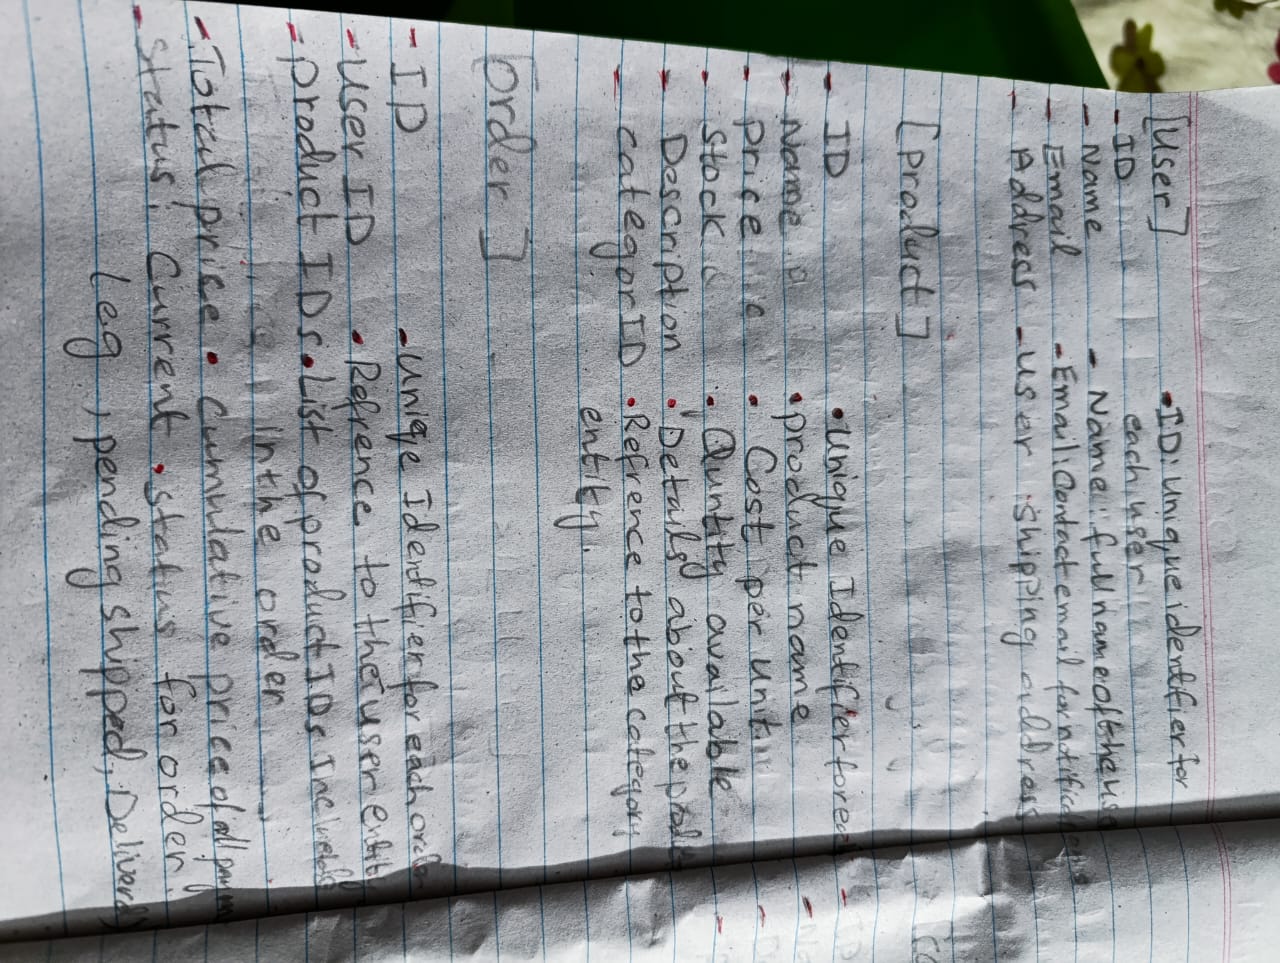 [User]
- ID • ID: Unique identifier for
each user
- Name - Name: full name of the
- Email - Email: Contact email for
- Address - User shipping address
[product]
- ID • Unique Identifier for
- Name • product name
- price • Cost per unit
- Stock • Quntity available
- Description • Details about the
- categorID • Refrence to the category
entity.
[Order]
- ID - Uniqe Identifier for each
- User ID • Refrence to the user
- product IDs • List of product IDs
in the order
- Total price • Cumulative price of
- status: Current • status for order
(eg, pending shipped,